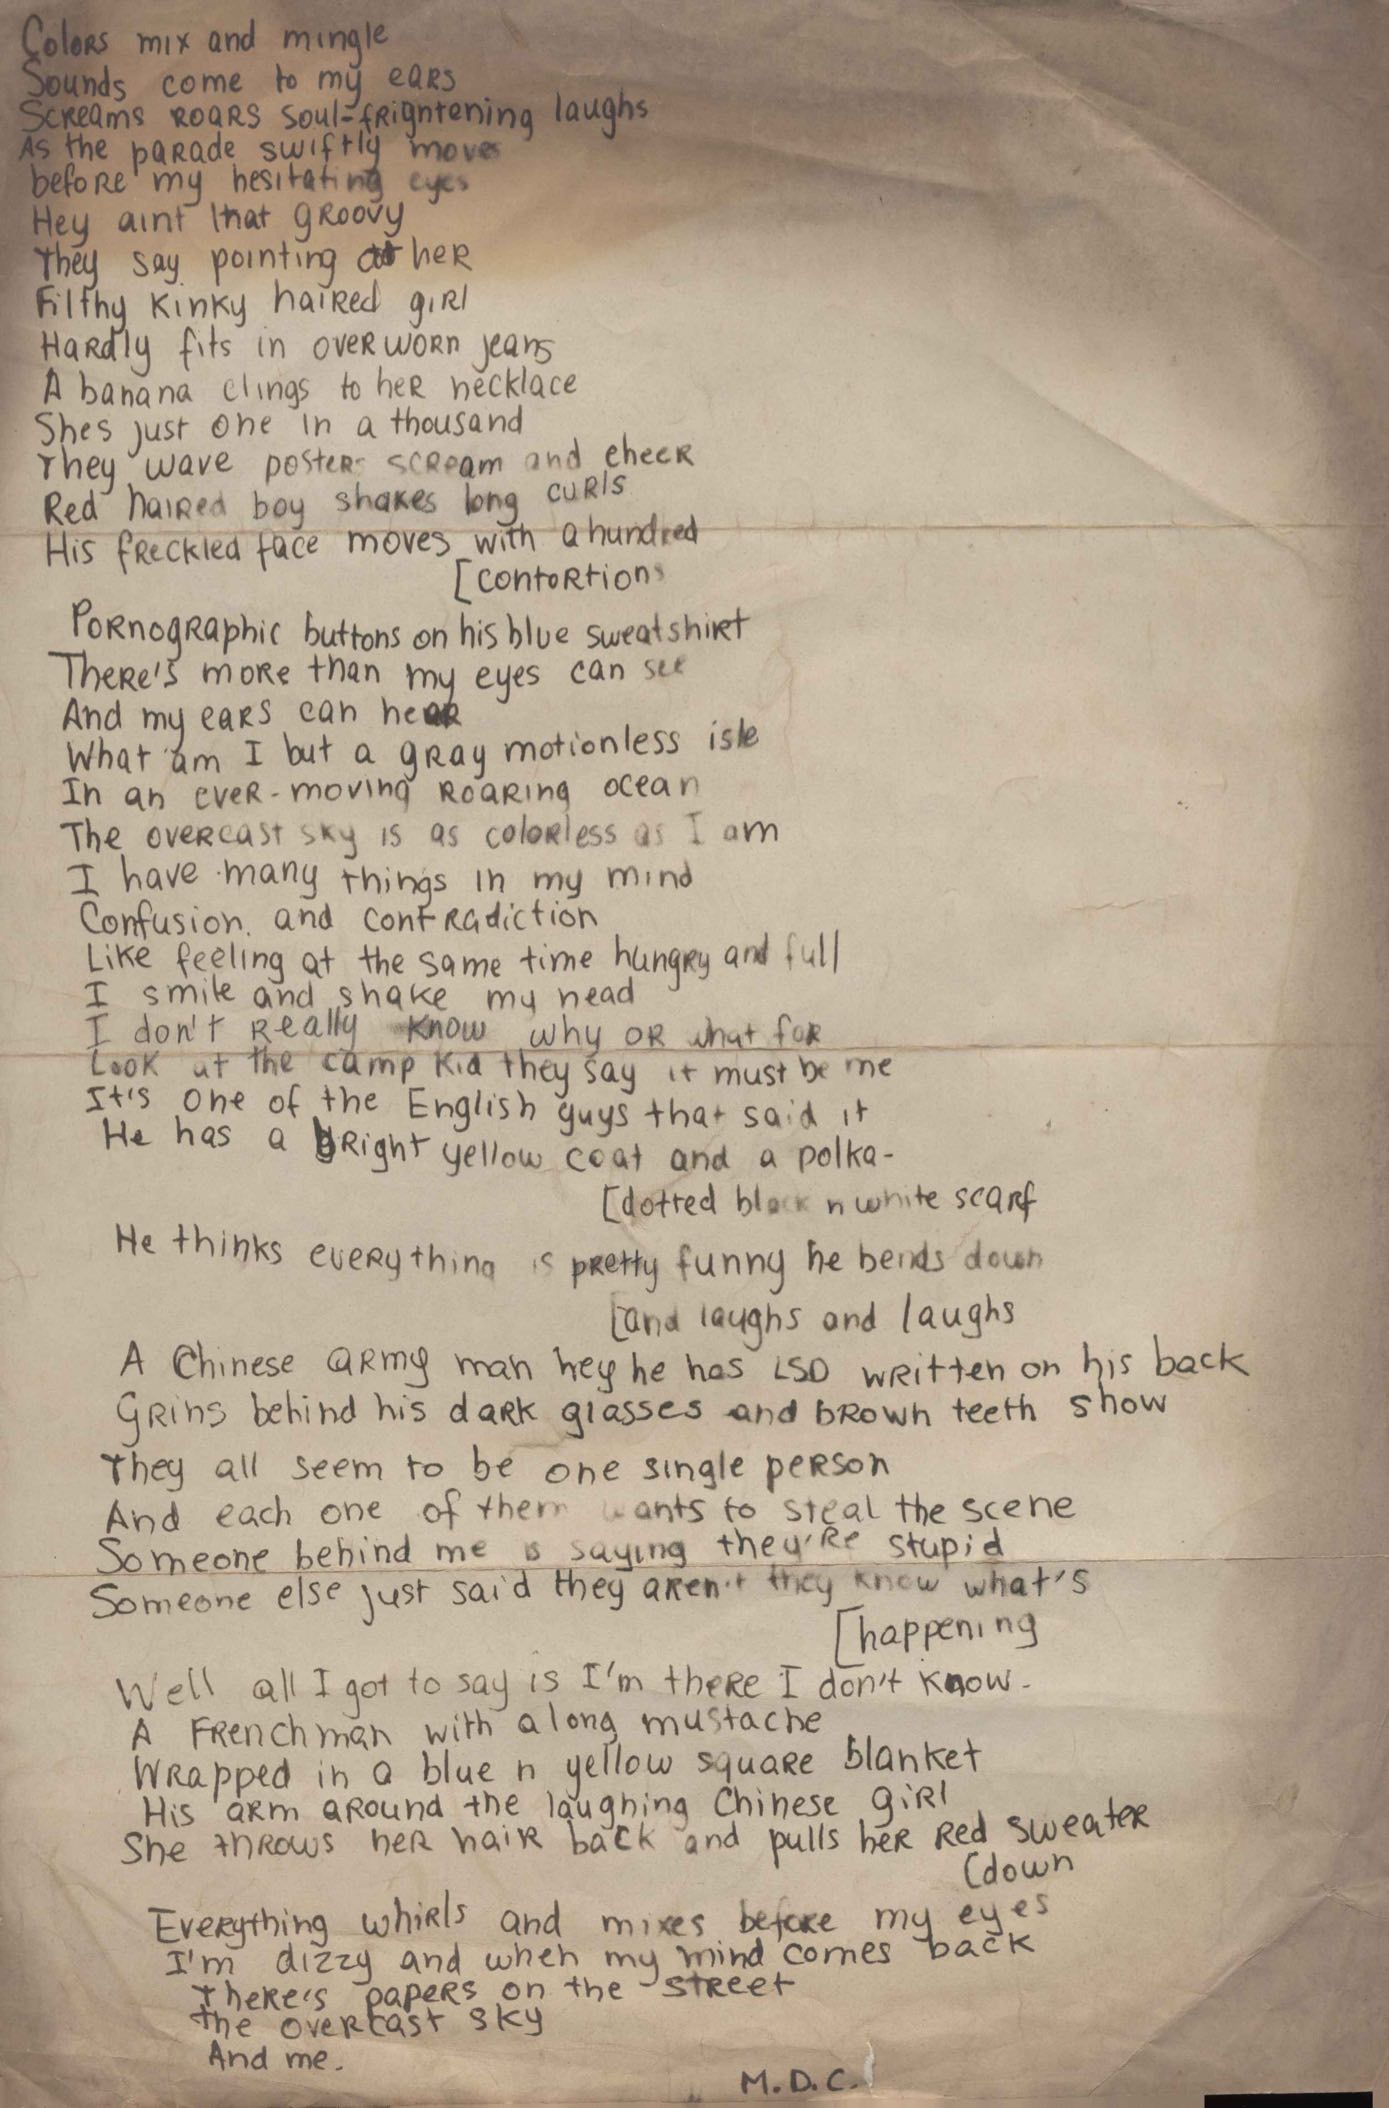 Colors mix and mingle
Sounds come to my ears
Screams roars soul-frigntening laughs
As the parade swiftly moves
before my hesitating eyes
Hey aint that groovy
They say pointing at her
Filthy kinky haired girl
Hardly fits in overworn jeans
A banana clings to her necklace
Shes just one in a thousand
They wave posters scream and cheer
Red haired boy shakes long curls
His freckled face moves with a hundred
[contortions
Pornographic buttons on his blue sweatshirt
There's more than my eyes can see
And my ears can hear
What am I but a gray motionless isle
In an ever-moving roaring ocean
The overcast sky is as colorless as I am
I have many things in my mind
Confusion. and contradiction
Like feeling at the same time hungry and full
I smile and shake my head
I don't really know why or what for
Look at the camp kid they say it must be me
It's one of the English guys that said it
He has a bright yellow coat and a polka-
[dotted black n white scarf
He thinks everything is pretty funny he bends down
[and laughs and laughs
A Chinese army man hey he has LSD written on his back
Grins behind his dark glasses and brown teeth show
They all seem to be one single person
And each one of them wants to steal the scene
Someone behind me is saying they're stupid
Someone else just said they aren't they know what's
[happening
Well all I got to say is I'm there I don't know.
A Frenchman with a long mustache
Wrapped in a blue n yellow square blanket
His arm around the laughing Chinese girl
She throws her hair back and pulls her red sweater
[down
Everything whirls and mixes before my eyes
I'm dizzy and when my mind comes back
There's papers on the street
the overcast sky
And me.
M.D.C.